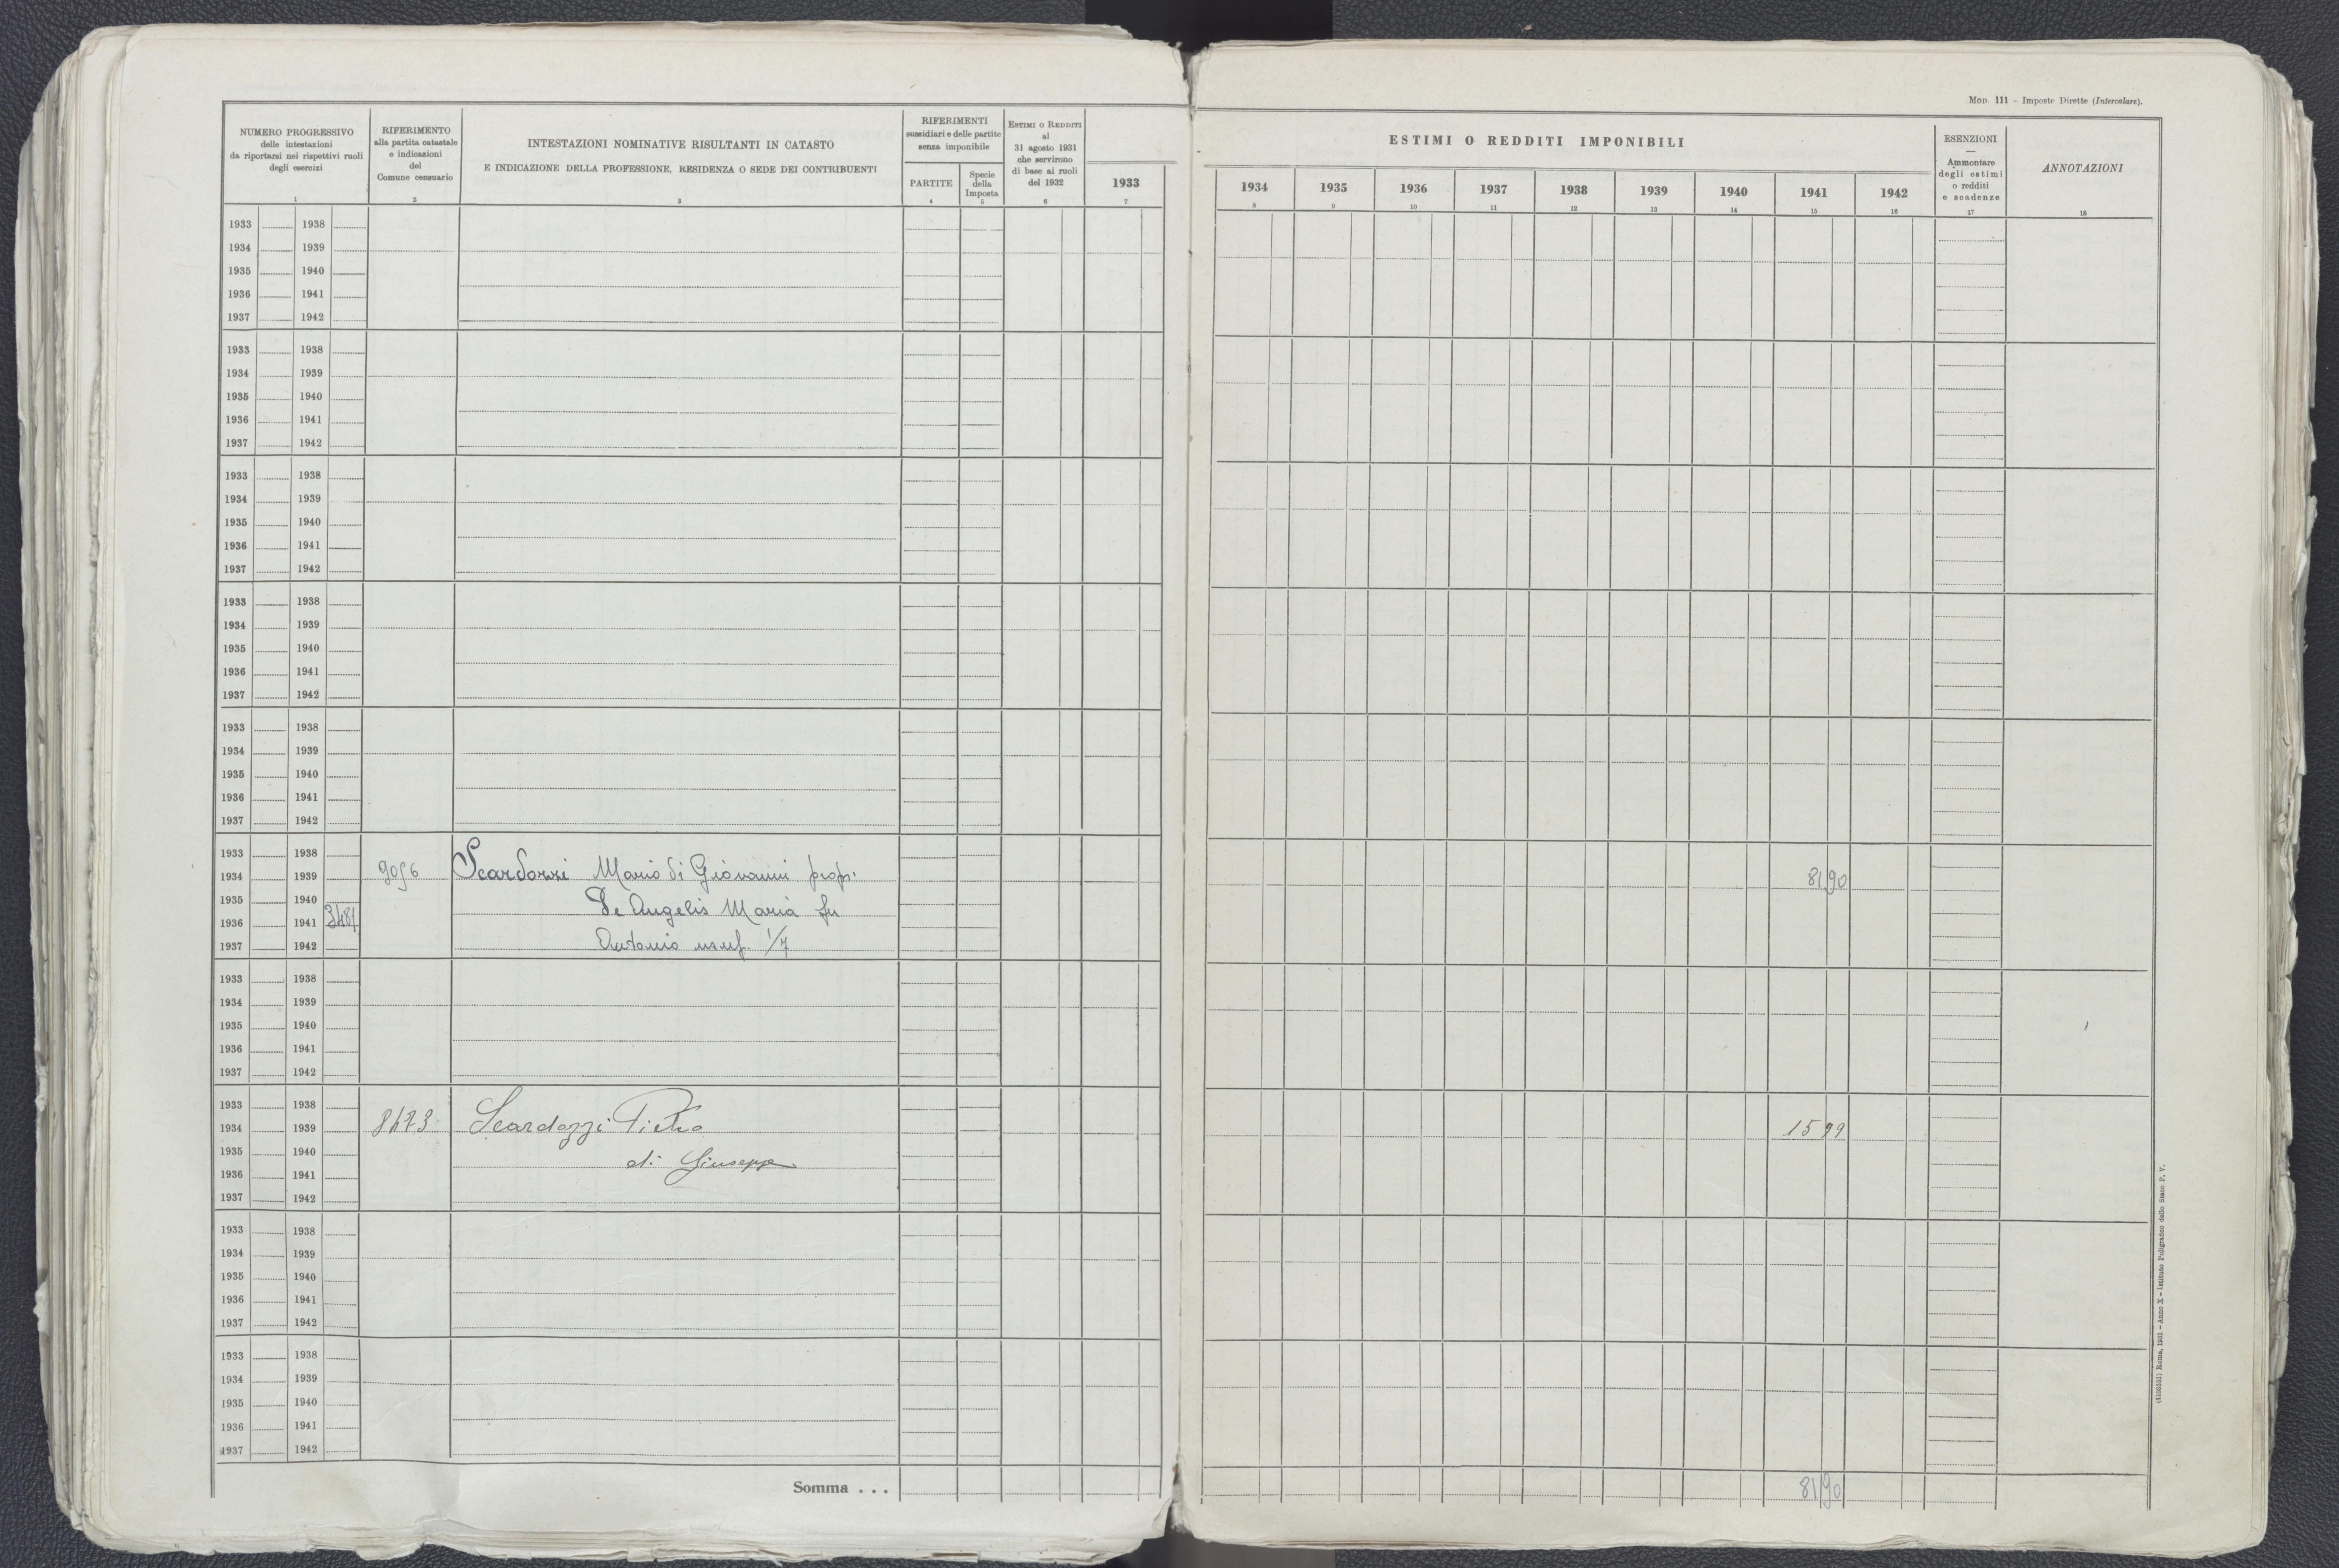 Mod. 111 - Imposte Dirette (Intercalare).
NUMERO PROGRESSIVO
delle intestazioni
da riportarsi nei rispettivi ruoli
degli esercizi
1
RIFERIMENTO
alla partita catastale
e indicazioni
del
Comune censuario
2
INTESTAZIONI NOMINATIVE RISULTANTI IN CATASTO
E INDICAZIONE DELLA PROFESSIONE, RESIDENZA O SEDE DEI CONTRIBUENTI
3
RIFERIMENTI
sussidiari e delle partite
senza imponibile
PARTITE
4
Specie
della
Imposta
5
ESTIMI O REDDITI
al
31 agosto 1931
che servirono
di base ai ruoli
del 1932
6
1933
7
ESTIMI O REDDITI IMPONIBILI
1934 1935 1936 1937 1938 1939 1940 1941 1942
8 9 10 11 12 13 14 15 16
ESENZIONI
Ammontare
degli estimi
o redditi
e scadenze
17
ANNOTAZIONI
18
1933 1938
1934 1939
1935 1940
1936 1941
1937 1942
1933 1938
1934 1939
1935 1940
1936 1941
1937 1942
1933 1938
1934 1939
1935 1940
1936 1941
1937 1942
1933 1938
1934 1939
1935 1940
1936 1941
1937 1942
1933 1938
1934 1939
1935 1940
1936 1941
1937 1942
1933 1938
1934 1939 9056 Scardozzi Mario di Giovanni prop. 81 90
1935 1940 De Angelis Maria fu
1936 1941 3481
1937 1942 Antonio usuf. 1/7
1933 1938
1934 1939
1935 1940
1936 1941
1937 1942
1933 1938
1934 1939 8473 Scardozzi Pietro 15 99
1935 1940 di Giuseppe
1936 1941
1937 1942
1933 1938
1934 1939
1935 1940
1936 1941
1937 1942
1933 1938
1934 1939
1935 1940
1936 1941
1937 1942
Somma . . . 81 90
Roma, 1931 - Anno X - Istituto Poligrafico dello Stato P. V.